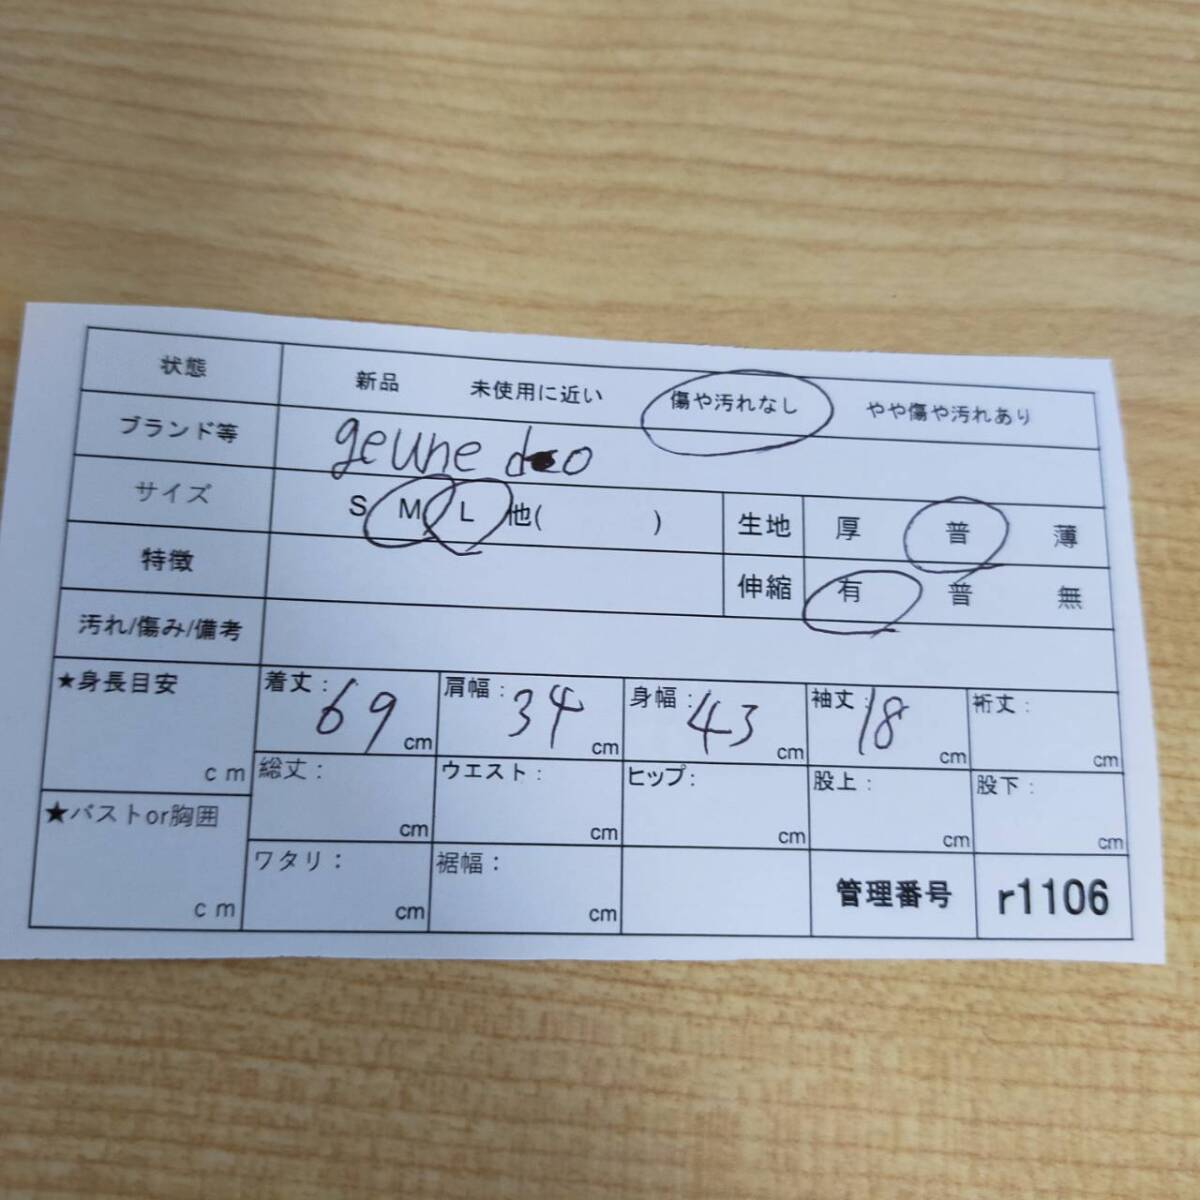 状態 新品 未使用に近い 傷や汚れなし やや傷や汚れあり
ブランド等 geune
サイズ S M L 他( ) 生地 厚 普 薄
特徴 伸縮 有 普 無
汚れ/傷み/備考
★身長目安 cm 着丈: 69 cm 肩幅: 34 cm 身幅: 43 cm 袖丈: 18 cm 裄丈: cm
総丈: cm ウエスト: cm ヒップ: cm 股上: cm 股下: cm
★バストor胸囲 cm ワタリ: cm 裾幅: cm 管理番号 r1106